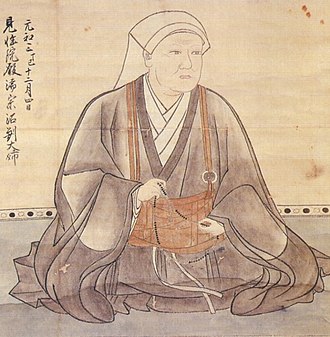 元和三巳十二月四日
見性院殿潙宗紹劉大姉